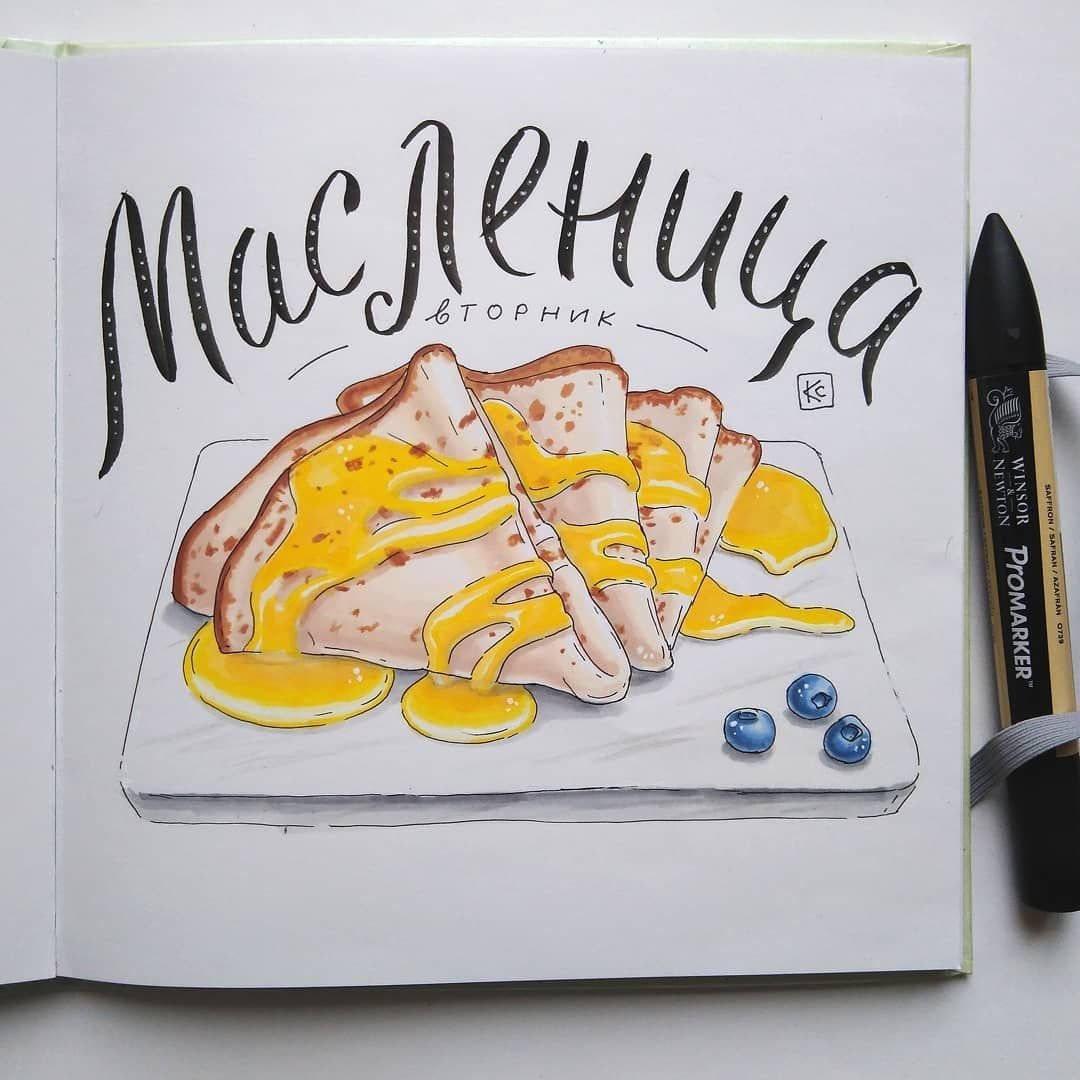 Масленица
вторник
КС
WINSOR
&
NEWTON
PROMARKER™
SAFFRON / SAFRAN / AZAFRÁN O739